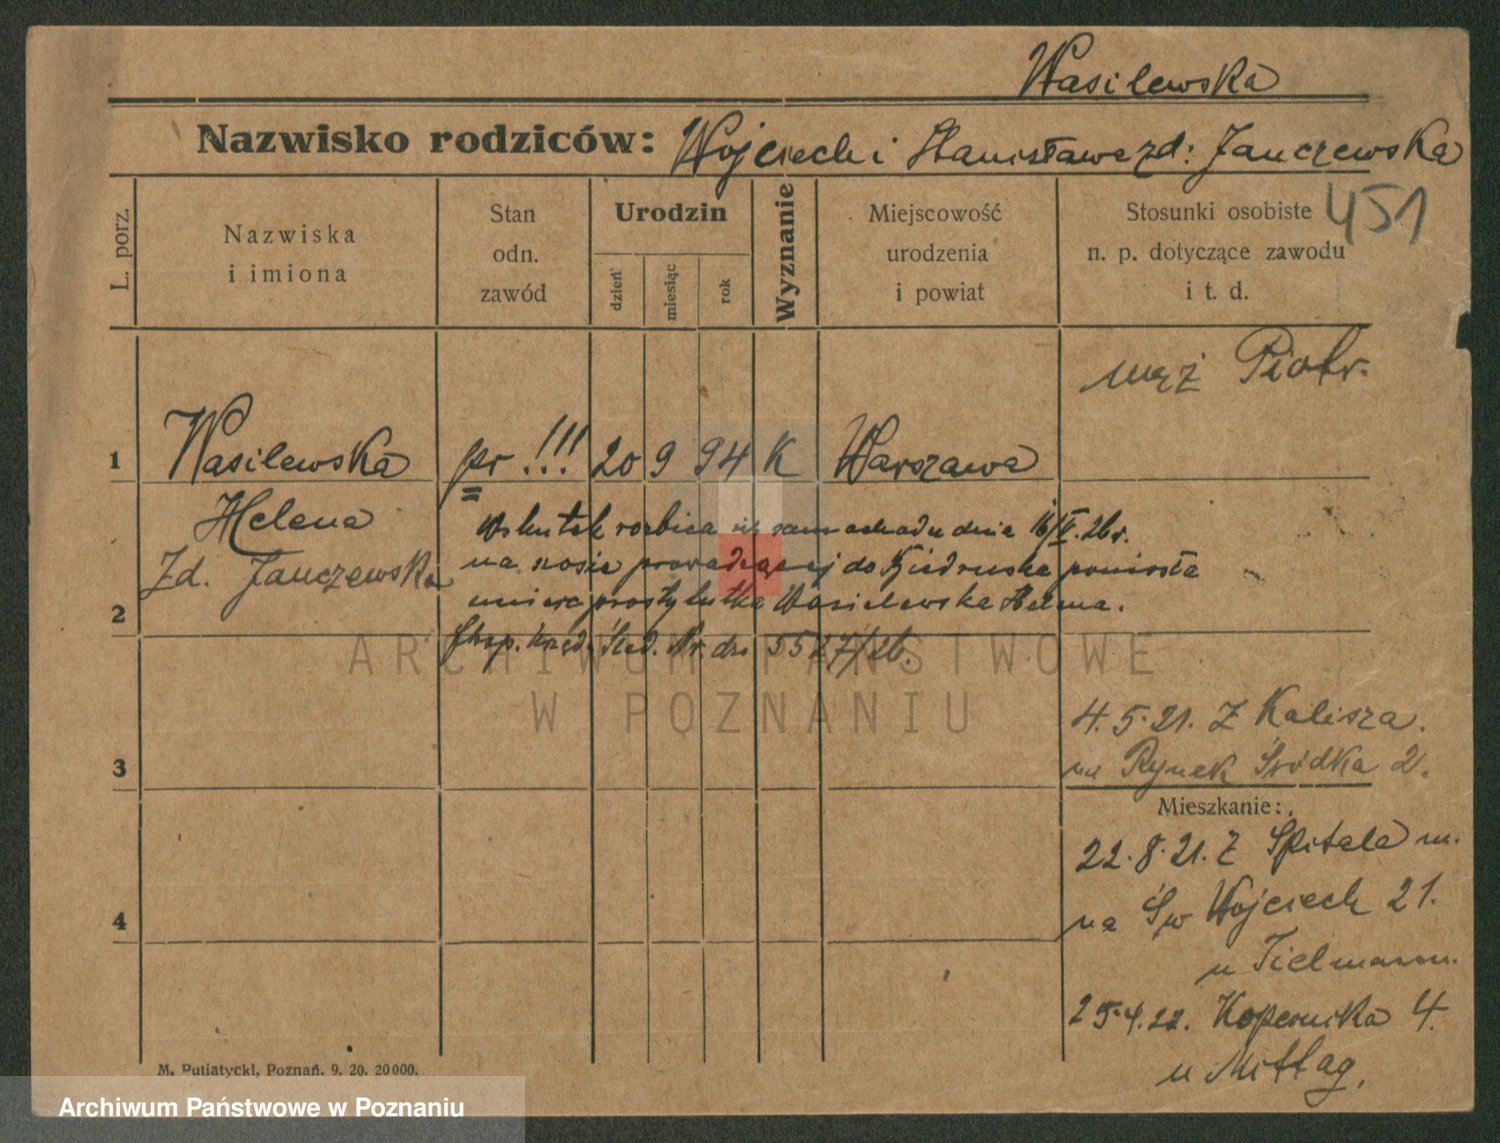 Wasilewska
Nazwisko rodziców: Wojciech i Stanisława zd: Janczewska
L. porz.
Nazwiska
i imiona
Stan
odn.
zawód
Urodzin
dzień
miesiąc
rok
Wyznanie
Miejscowość
urodzenia
i powiat
Stosunki osobiste
n. p. dotyczące zawodu
i t. d.
451
mąż Piotr.
1
Wasilewska
pr !!!
20
9
94
K
Warszawa
Helena
Zd. Janczewska
Wskutek rozbicia się samochodu dnia 16/V. 26 r.
na szosie prowadzącej do Biedruska poniosła
śmierć prostytutka Wasielewska Helena.
2
Śled. Nr. 5527/26.
ARCHIWUM PAŃSTWOWE
W POZNANIU
4.5.21. Z Kalisza.
na Rynek Śródka 2.
3
Mieszkanie:
22.8.21. Z Spitala m.
na Św Wojciech 21.
u Tielmann.
4
25.4.22. Kopernika 4.
u Mittag.
M. Putiatycki, Poznań. 9. 20. 20000.
Archiwum Państwowe w Poznaniu